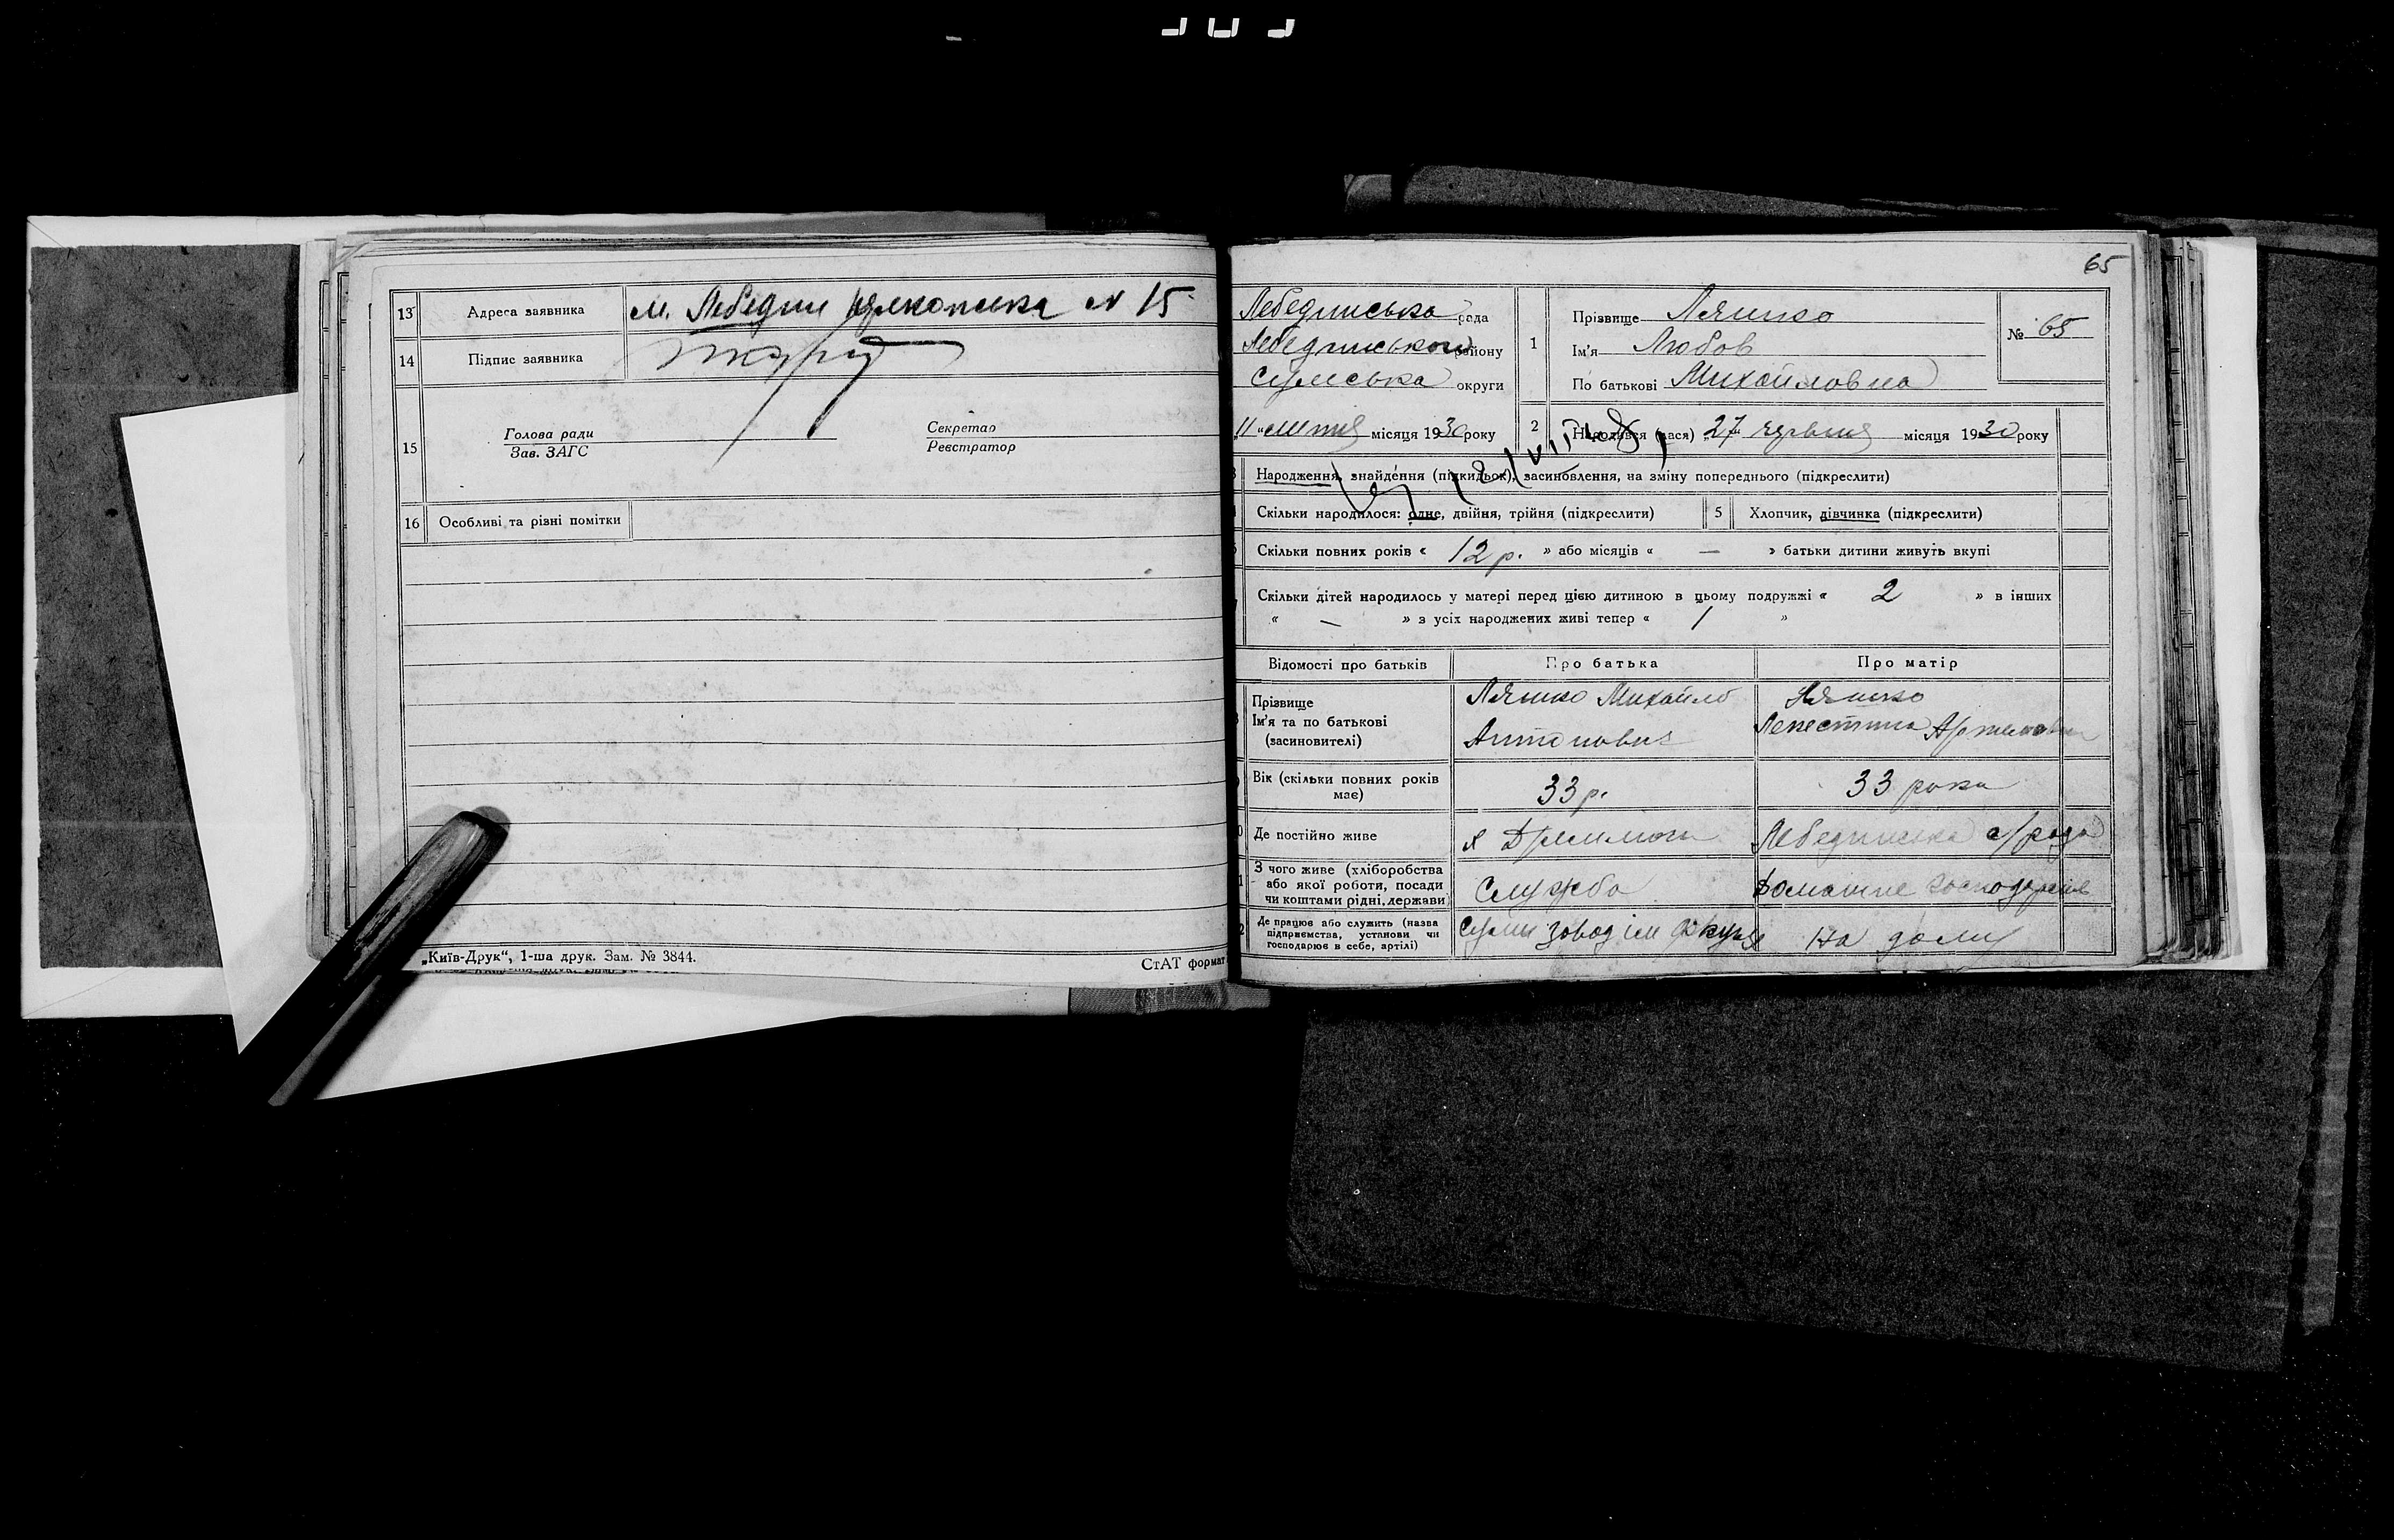 13 Адреса заявника м. Лебедин № 15
14 Підпис заявника
15 Голова ради Секретар
Зав. ЗАГС Реєстратор
16 Особливі та різні помітки
„Київ-Друк“, 1-ша друк. Зам. № 3844.
СтАТ формат
65
Лебединська рада
Лебединського району
Сумська округи
„11“ липня місяця 1930 року
1 Прізвище Ляшко
Ім'я Любов
По батькові Михайловна
№ 65
2 Народився (лася) „27“ червня місяця 1930 року
Народження, знайдення (підкидьок), засиновлення, на зміну попереднього (підкреслити)
Скільки народилося: одне, двійня, трійня (підкреслити) 5 Хлопчик, дівчинка (підкреслити)
Скільки повних років « 12 р. » або місяців « — » батьки дитини живуть вкупі
Скільки дітей народилось у матері перед цією дитиною в цьому подружжі « 2 » в інших
« — » з усіх народжених живі тепер « 1 »
Відомості про батьків Про батька Про матір
Прізвище Ляшко Михайло Ляшко
Ім'я та по батькові
(засновителі) Антонович
Вік (скільки повних років
має) 33 р. 33 роки
Де постійно живе Лебединська с/рада
З чого живе (хліборобства
або якої роботи, посади
чи коштами рідні, держави Служба Домашнє господарств
Де працює або служить (назва
підприємства, установи чи
господарює в себе, артілі) Суми завод ім Фрунзе на дому